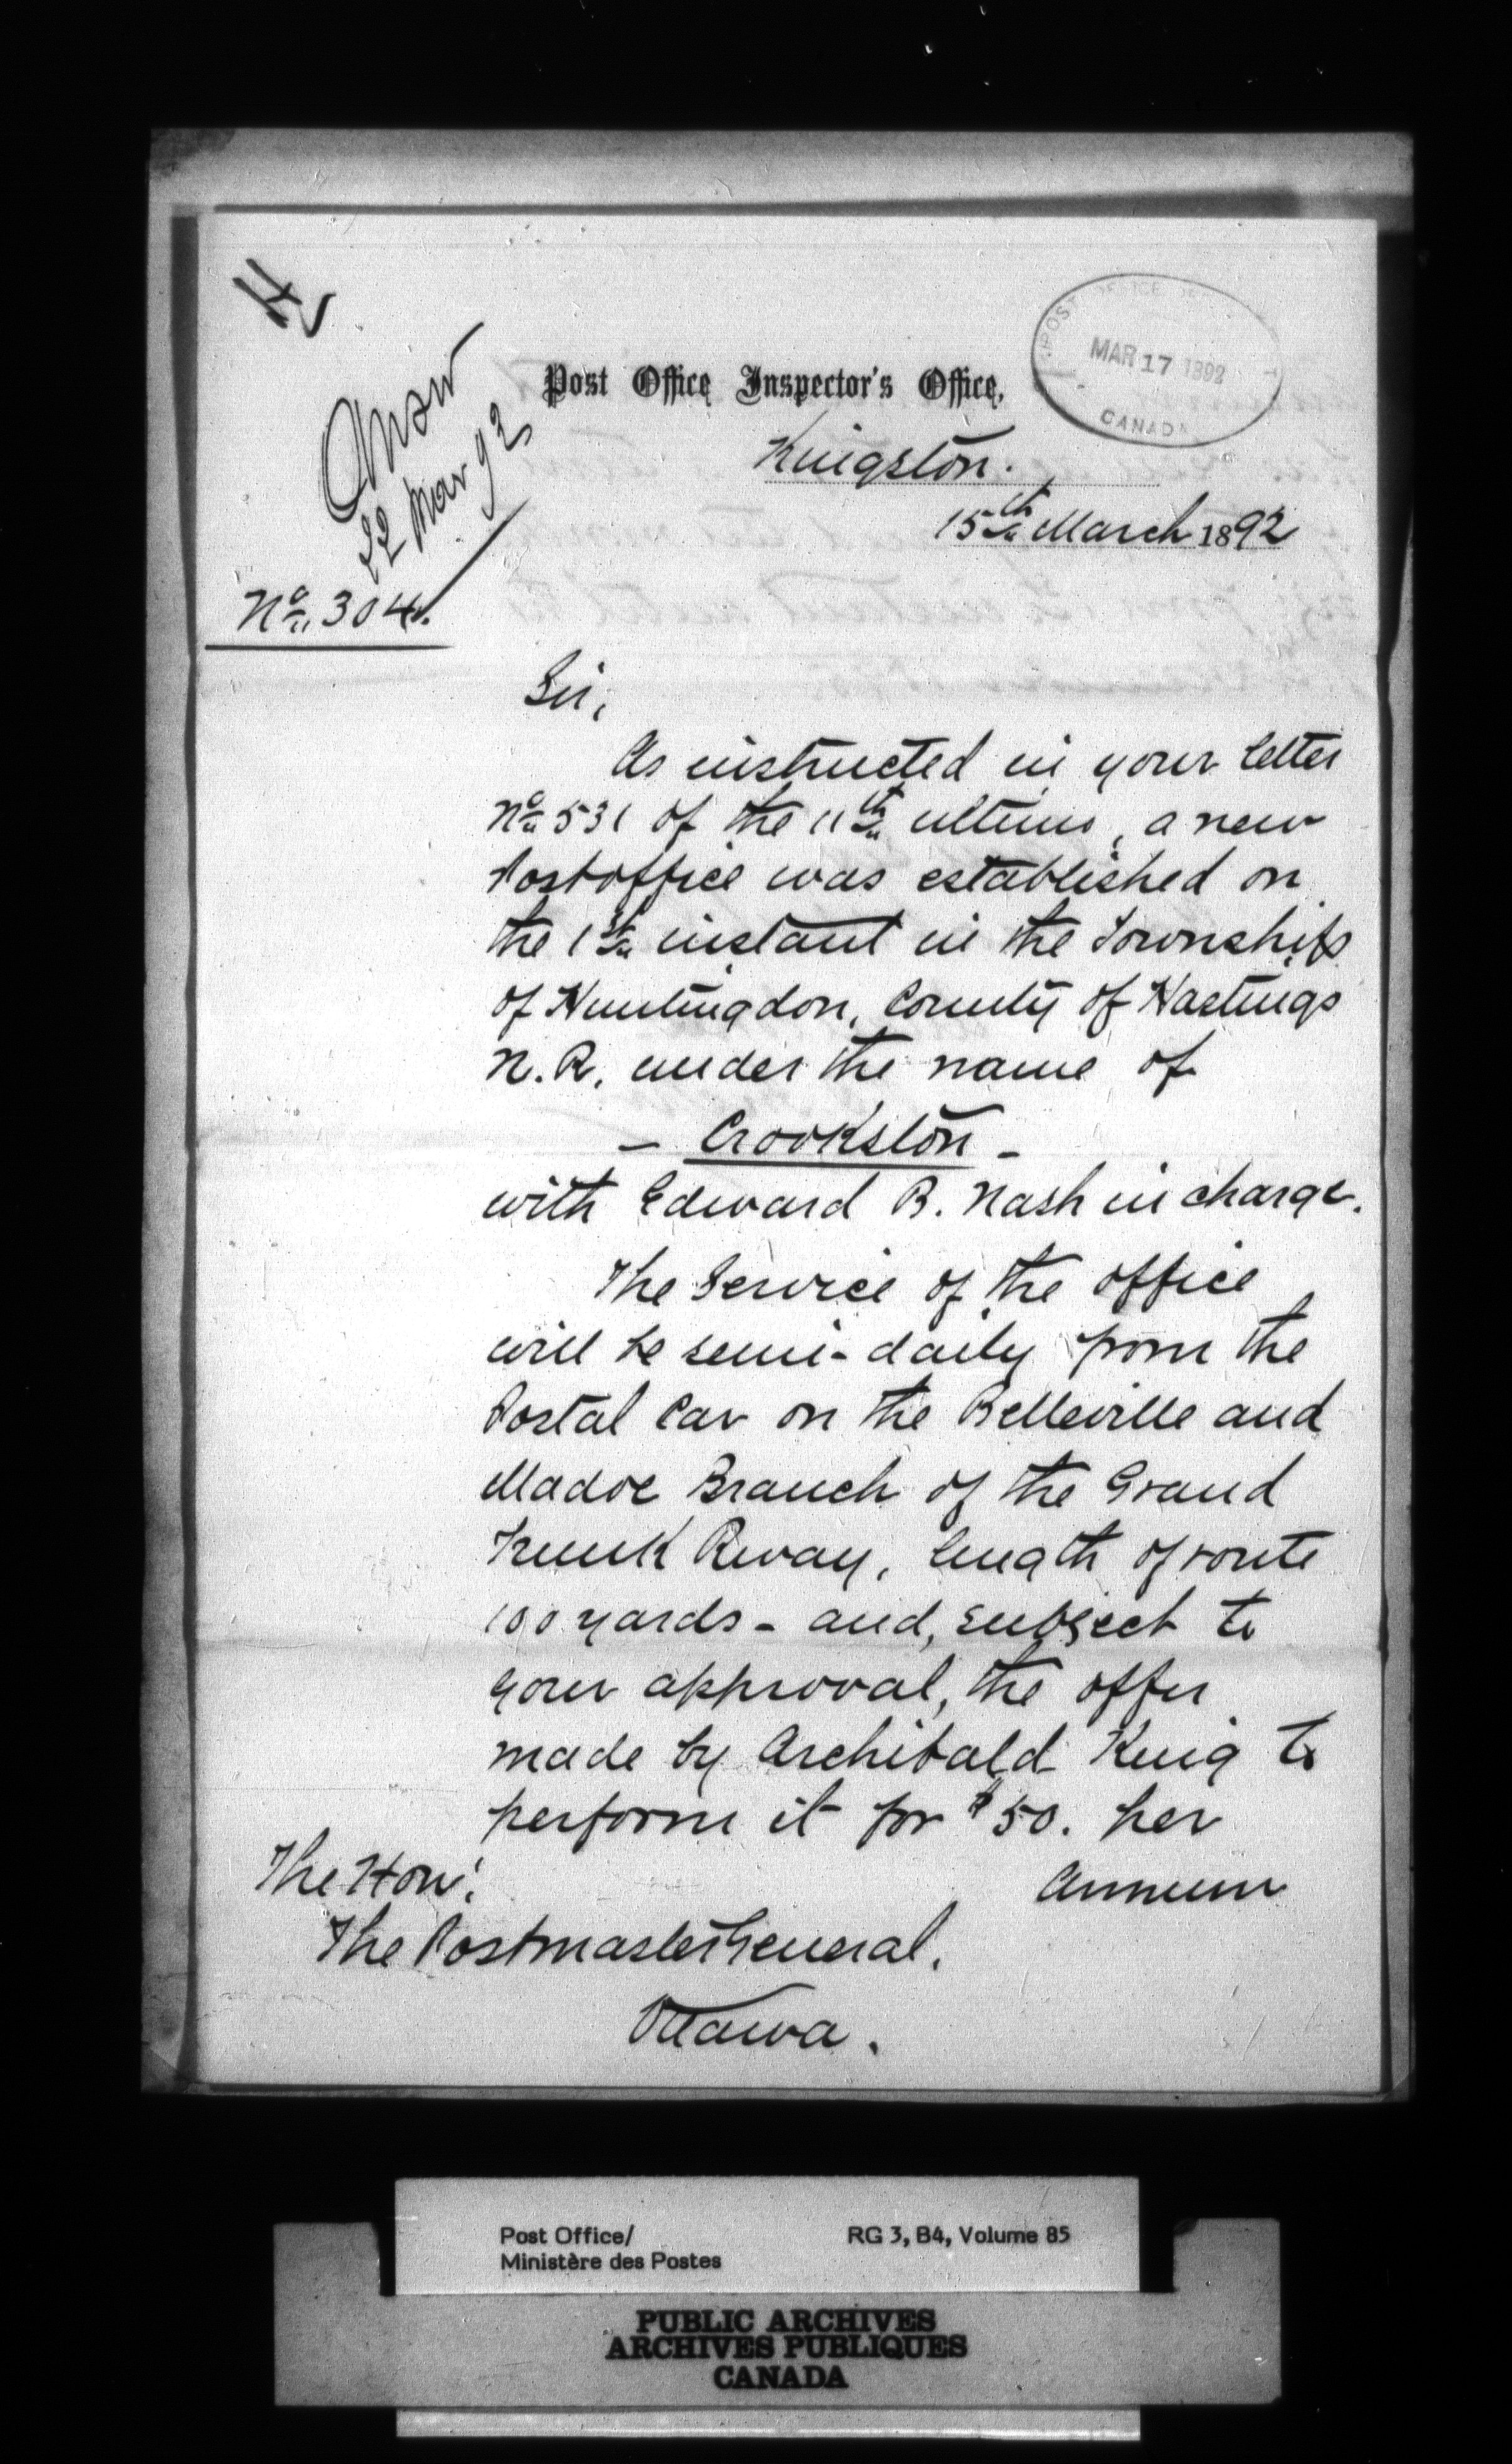 Answd
22 Mar 92
POST OFFICE
MAR 17 1892
CANADA
Post Office Inspector's Office,
Kingston.
15th March 1892
No. 304.
Sir,
As instructed in your letter
No 531 of the 11th ultimo, a new
Postoffice was established on
the 1st instant in the Township
of Huntingdon, County of Hastings
N.R. under the name of
- Crookston -
with Edward B. Nash in charge.
The Service of the office
will be semi-daily from the
Postal Car on the Belleville and
Madoc Branch of the Grand
Trunk Rway, length of route
100 yards - and, subject to
your approval, the offer
made by Archibald King to
perform it for $50. per
Annum
The Hon.
The Postmaster General.
Ottawa.
Post Office/
Ministère des Postes
RG 3, B4, Volume 85
PUBLIC ARCHIVES
ARCHIVES PUBLIQUES
CANADA